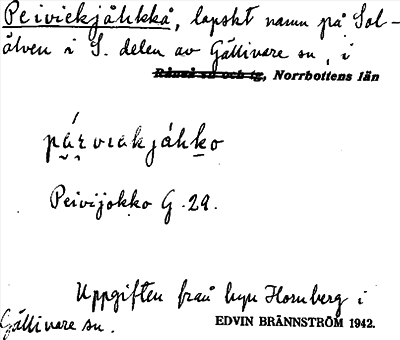 Peiviekjåhkkå, lapskt namn på Sol-
älven i S. delen av Gällivare sn, i
Råneå sn och tg, Norrbottens län
Peivijokko G. 29.
Uppgiften från hyn Hornberg i
Gällivare sn.
EDVIN BRÄNNSTRÖM 1942.